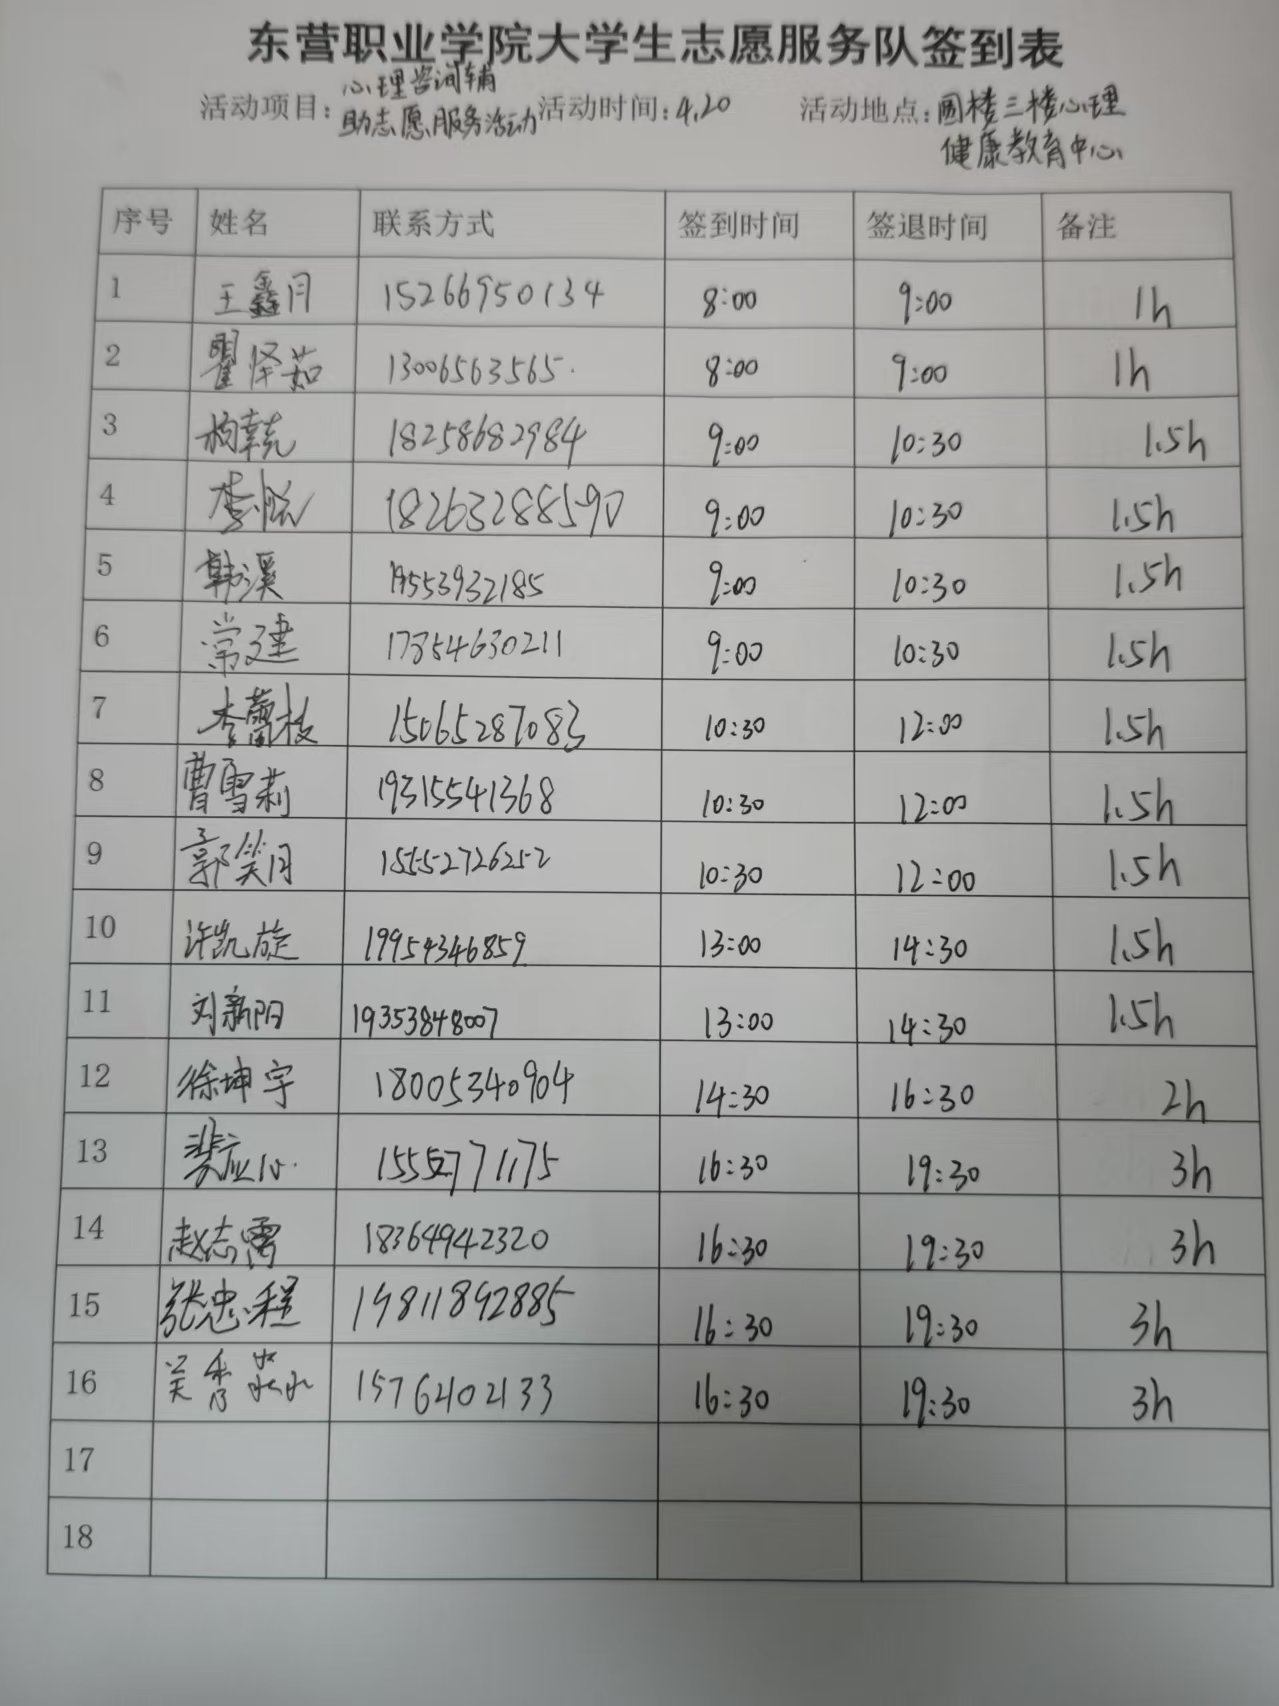 东营职业学院大学生志愿服务队签到表
活动项目：心理咨询辅助志愿服务活动 活动时间：4.20 活动地点：圆楼三楼心理健康教育中心
序号 姓名 联系方式 签到时间 签退时间 备注
1 王鑫月 15266950134 8:00 9:00 1h
2 瞿怿茹 13006563565 8:00 9:00 1h
3 18258682984 9:00 10:30 1.5h
4 李悦 18263288590 9:00 10:30 1.5h
5 韩溪 19553932185 9:00 10:30 1.5h
6 常建 17854630211 9:00 10:30 1.5h
7 李蕾枝 15065287083 10:30 12:00 1.5h
8 曹雪莉 19315541368 10:30 12:00 1.5h
9 郭笑月 15552726252 10:30 12:00 1.5h
10 许凯旋 19954346859 13:00 14:30 1.5h
11 刘新阳 19353848007 13:00 14:30 1.5h
12 徐坤宇 18005340904 14:30 16:30 2h
13 16:30 19:30 3h
14 赵志雷 18364942320 16:30 19:30 3h
15 张忠程 19811892885 16:30 19:30 3h
16 吴秀 16:30 19:30 3h
17
18